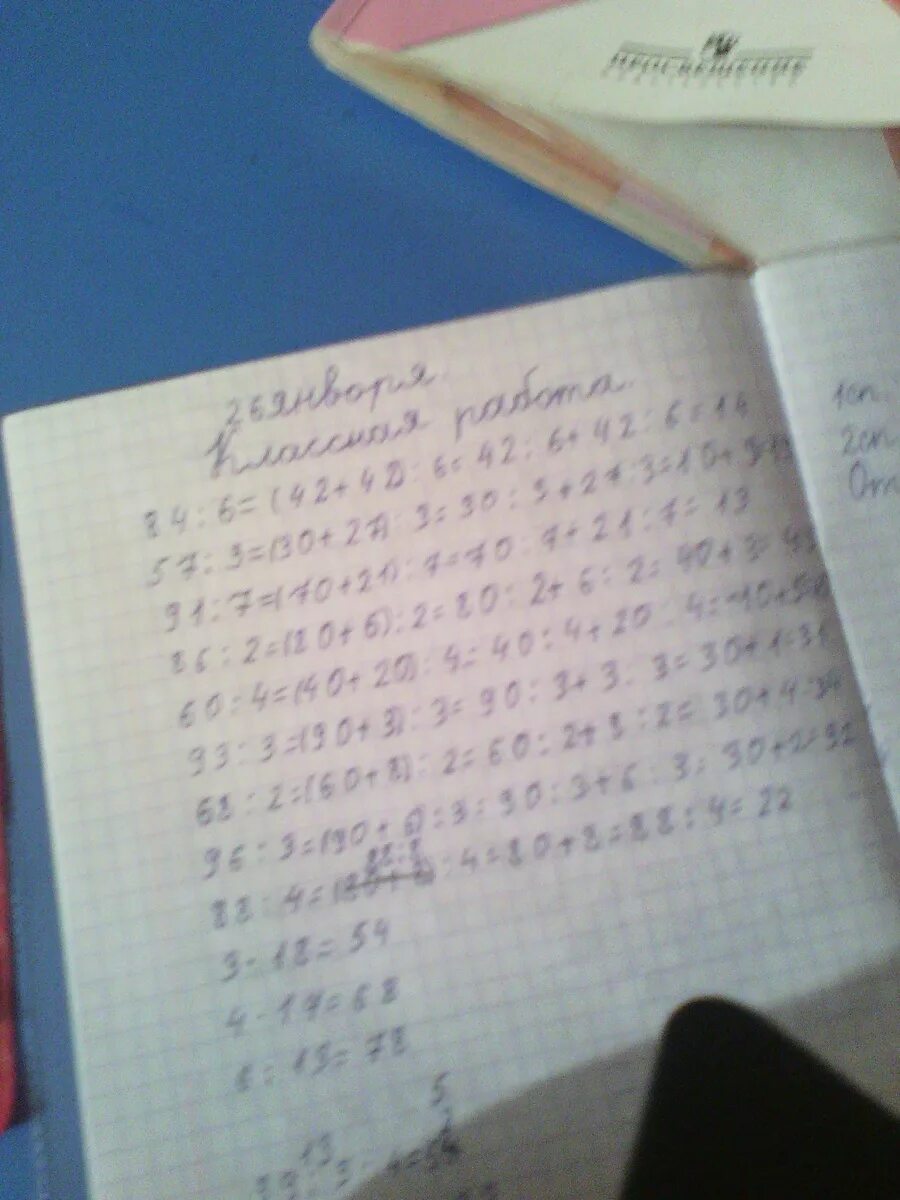 ПРОСВЕЩЕНИЕ
26 января
Классная работа
84 : 6 = (42 + 42) : 6 = 42 : 6 + 42 : 6 = 14
57 : 3 = (30 + 27) : 3 = 30 : 3 + 27 : 3 = 10 + 9
91 : 7 = (70 + 21) : 7 = 70 : 7 + 21 : 7 = 13
86 : 2 = (80 + 6) : 2 = 80 : 2 + 6 : 2 = 40 + 3 = 43
60 : 4 = (40 + 20) : 4 = 40 : 4 + 20 : 4 = 10 + 5
93 : 3 = (90 + 3) : 3 = 90 : 3 + 3 : 3 = 30 + 1 = 31
68 : 2 = (60 + 8) : 2 = 60 : 2 + 8 : 2 = 30 + 4 = 34
96 : 3 = (90 + 6) : 3 = 90 : 3 + 6 : 3 = 30 + 2 = 32
88 : 4 = : 4 = 80 + 8 = 88 : 4 = 22
3 · 18 = 54
4 · 17 = 68
6 : 13 = 78
5
13
1сп.
2сп
От